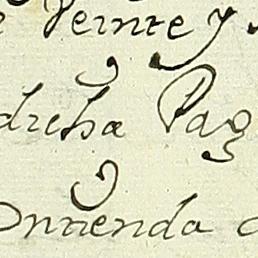 Veinte y
dicha Pag
ontienda